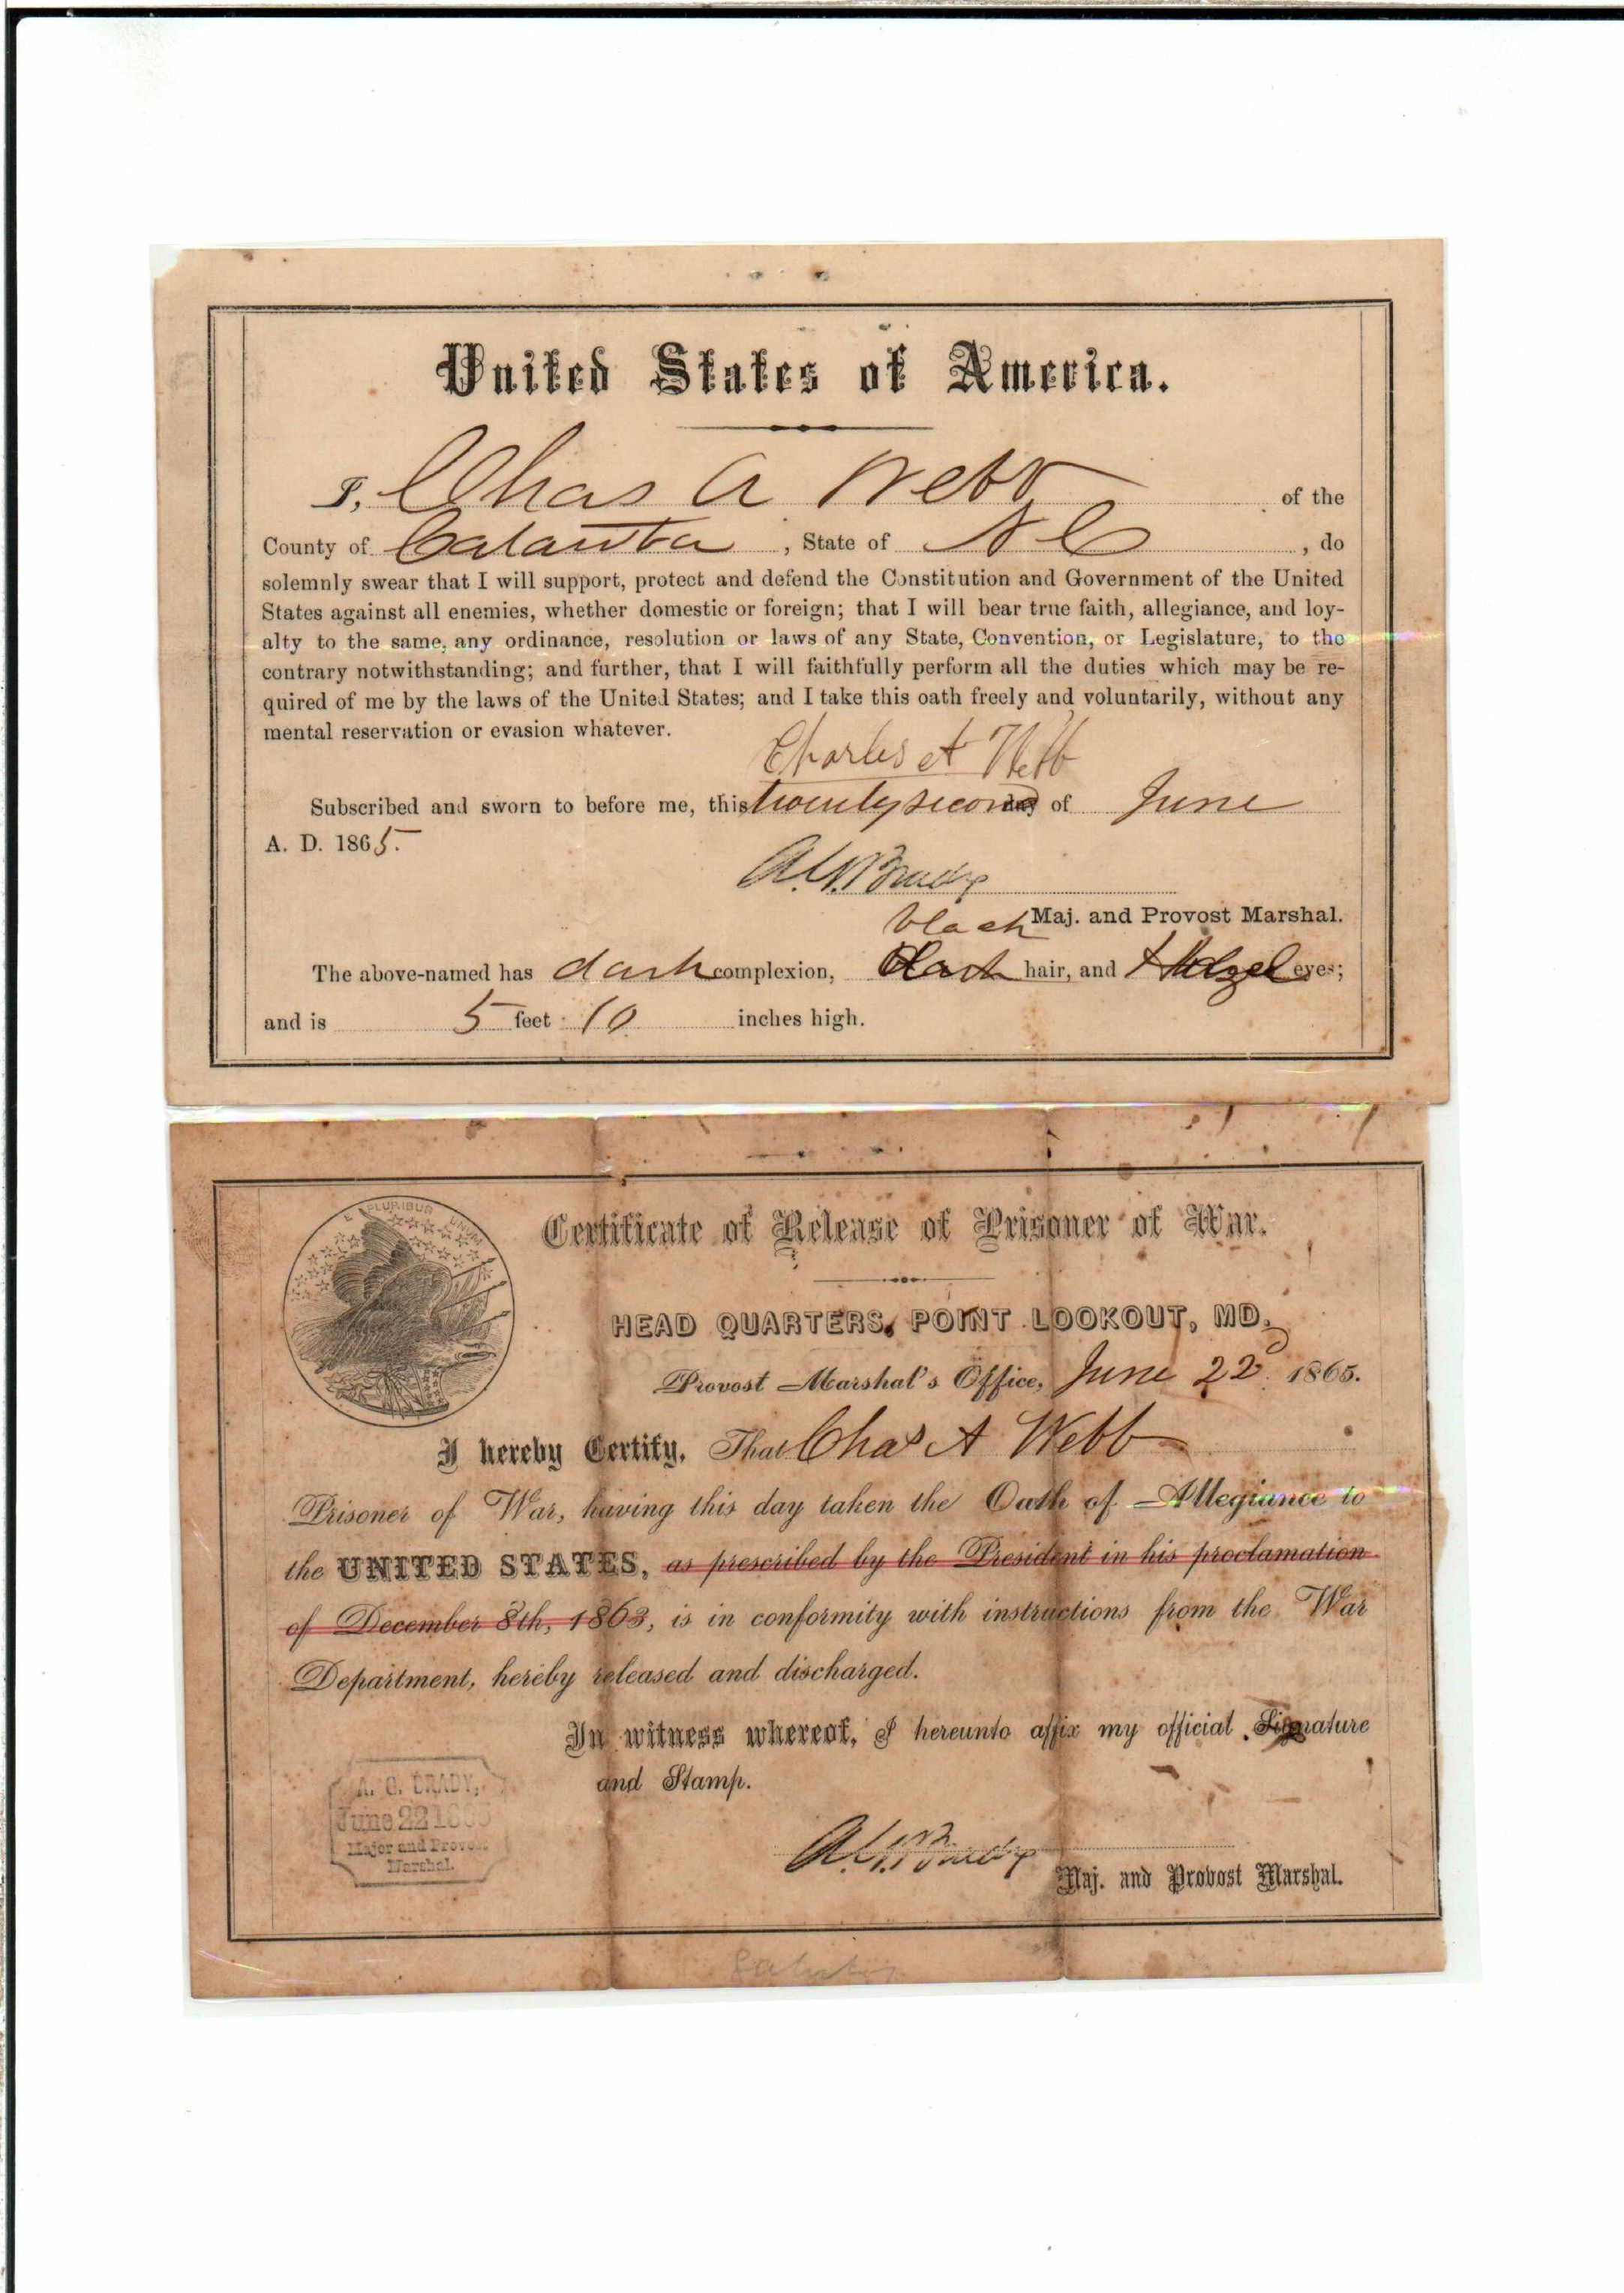 United States of America.
I, Chas A Webb of the
County of Catawba, State of N C, do
solemnly swear that I will support, protect and defend the Constitution and Government of the United
States against all enemies, whether domestic or foreign; that I will bear true faith, allegiance, and loy-
alty to the same, any ordinance, resolution or laws of any State, Convention, or Legislature, to the
contrary notwithstanding; and further, that I will faithfully perform all the duties which may be re-
quired of me by the laws of the United States; and I take this oath freely and voluntarily, without any
mental reservation or evasion whatever.
Charles A Webb
Subscribed and sworn to before me, this twenty second day of June
A. D. 1865.
A. G. Brady
Maj. and Provost Marshal.
black
The above-named has dark complexion, dark hair, and Hazel eyes;
and is 5 feet 10 inches high.
E PLURIBUS UNUM
Certificate of Release of Prisoner of War.
HEAD QUARTERS, POINT LOOKOUT, MD.
Provost Marshal's Office, June 22d 1865.
I hereby Certify, That Chas A Webb
Prisoner of War, having this day taken the Oath of Allegiance to
the UNITED STATES, as prescribed by the President in his proclamation
of December 8th, 1863, is in conformity with instructions from the War
Department, hereby released and discharged.
In witness whereof, I hereunto affix my official Signature
and Stamp.
A. G. BRADY,
June 22 1865
Major and Provost
Marshal.
A. G. Brady
Maj. and Provost Marshal.